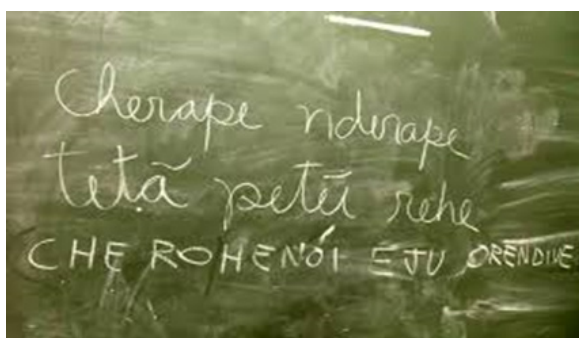 Cherape nderape
tetã petẽĩ rehe
CHE ROHENÓI EJU ORENDIVE